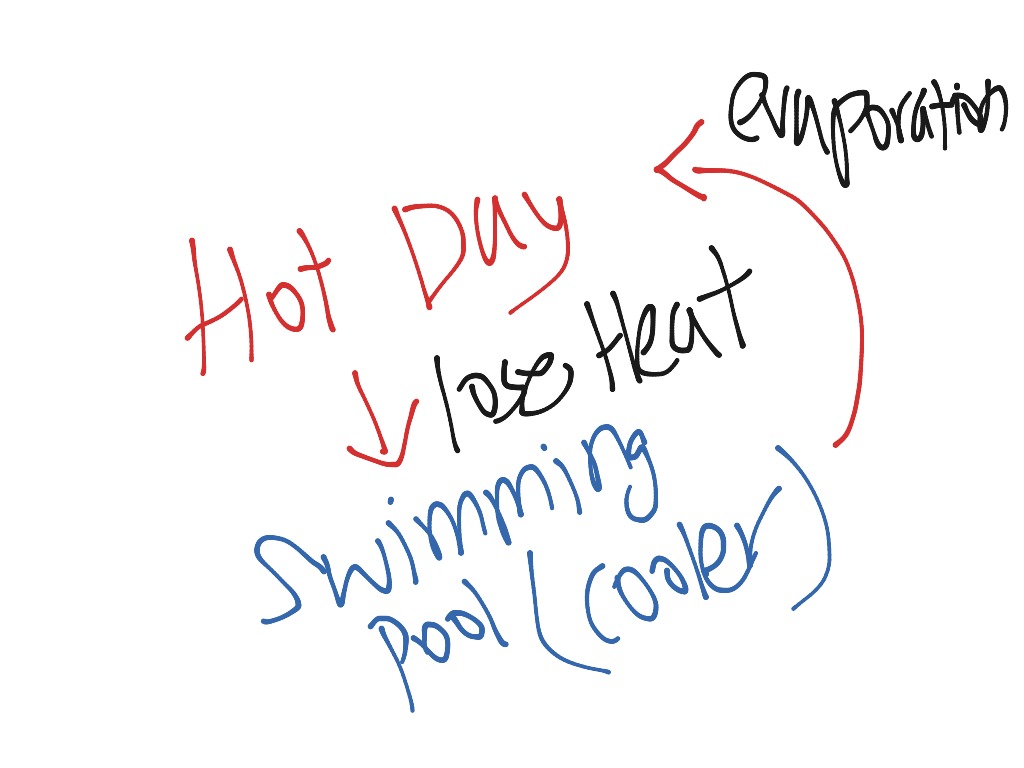 evaporation
Hot Day
lose Heat
swimming
pool (cooler)